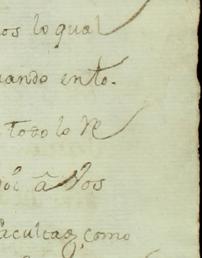 os lo qual
uando ento-
todo lo Re
â Vos
facultad, como